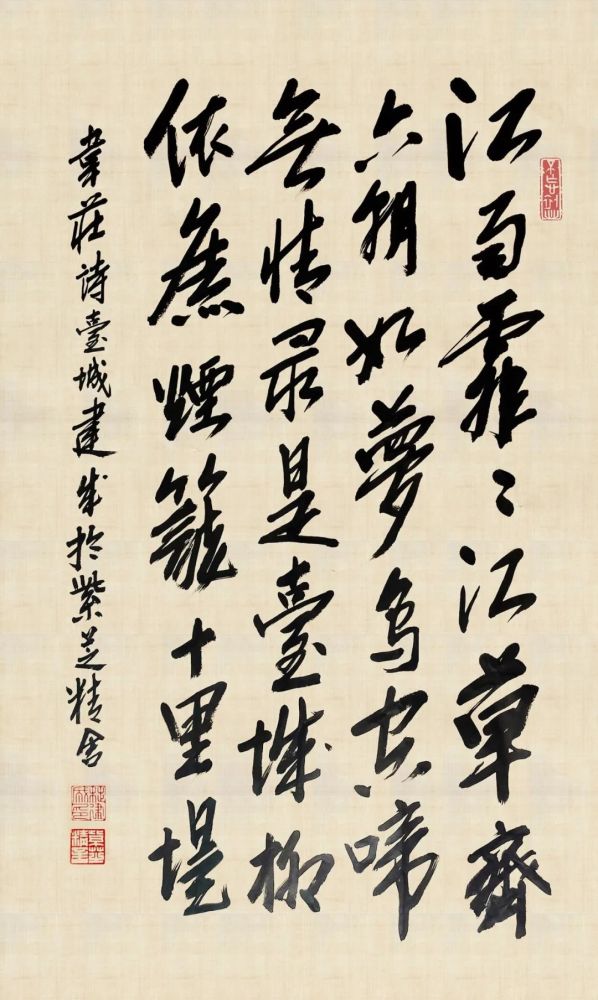 江雨霏〻江草齊
六朝如夢鳥空啼
無情最是臺城柳
依舊煙籠十里堤
韋莊詩臺城建成於紫芝精舍